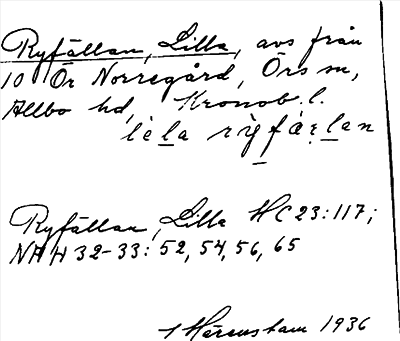 Ryfällan, Lilla, avs från
10 Ör Norregård, Örs sn,
Allbo hd, Kronob. l.
Ryfällan, Lilla HC 23:117;
NAH 32-33: 52, 54, 56, 65
1936